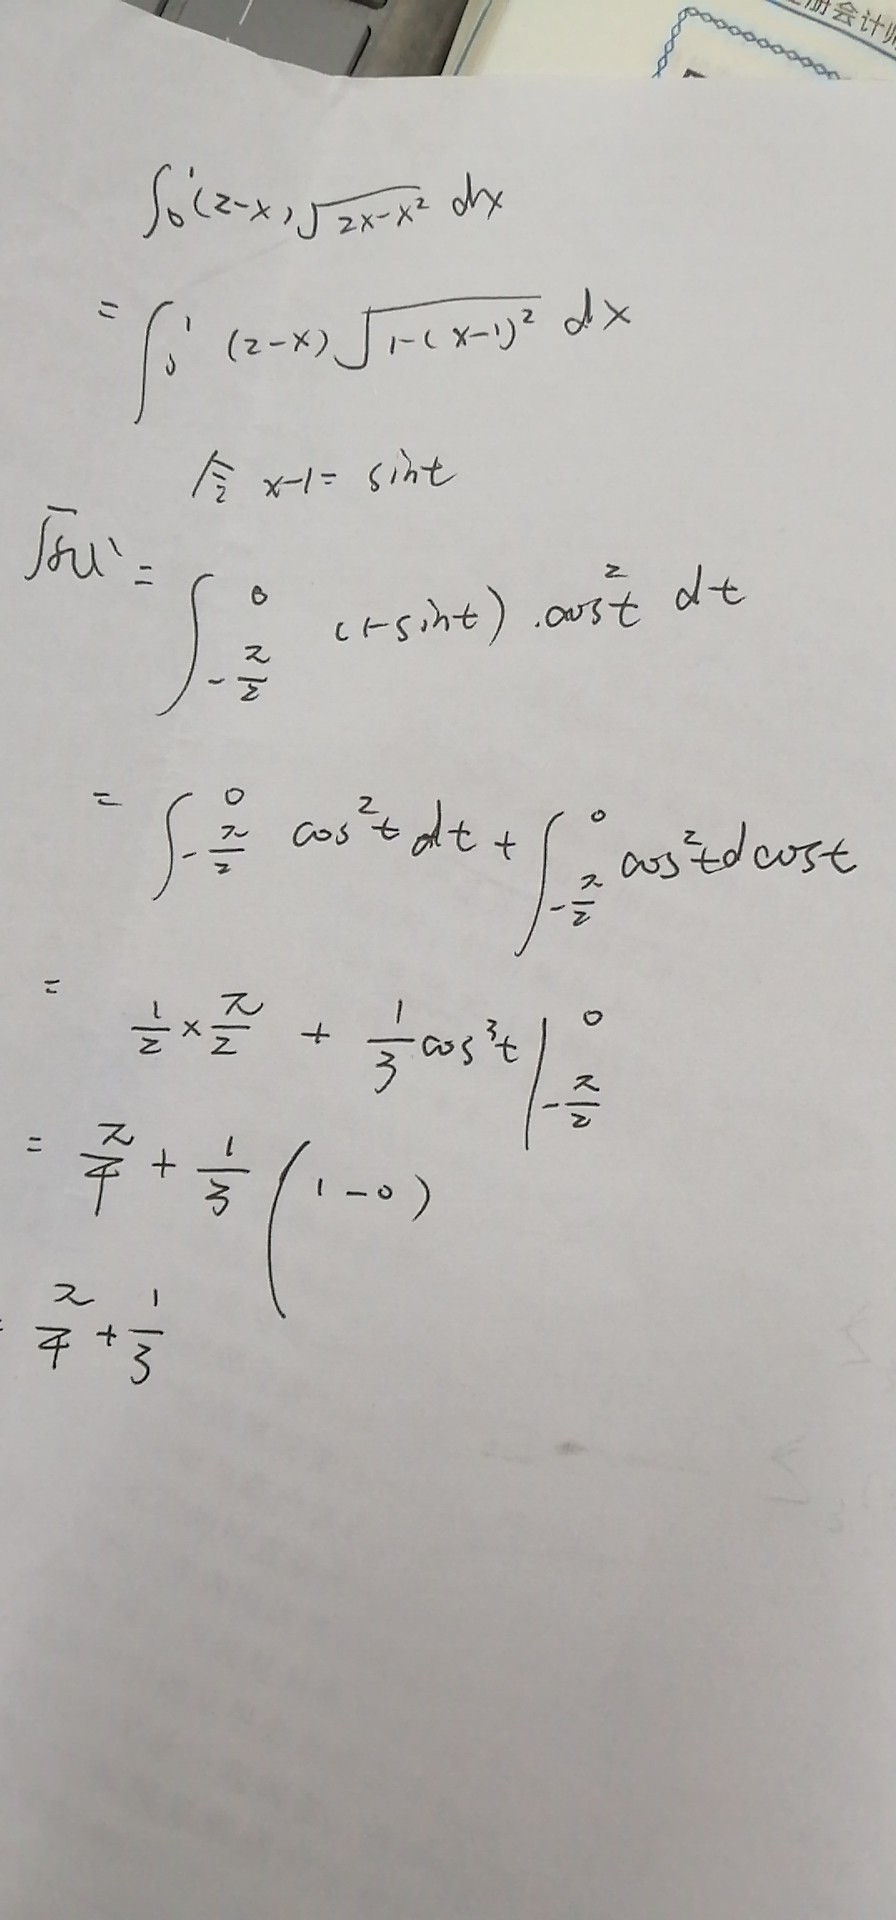 册会计师
∫₀¹(2-x)√(2x-x²) dx
= ∫₀¹ (2-x)√(1-(x-1)²) dx
令 x-1= sint
原式 = ∫_{-π/2}^{0} (1-sint).cos²t dt
= ∫_{-π/2}^{0} cos²t dt + ∫_{-π/2}^{0} cos²t d cost
= 1/2 × π/2 + 1/3 cos³t |_{-π/2}^{0}
= π/4 + 1/3 (1-0)
= π/4 + 1/3